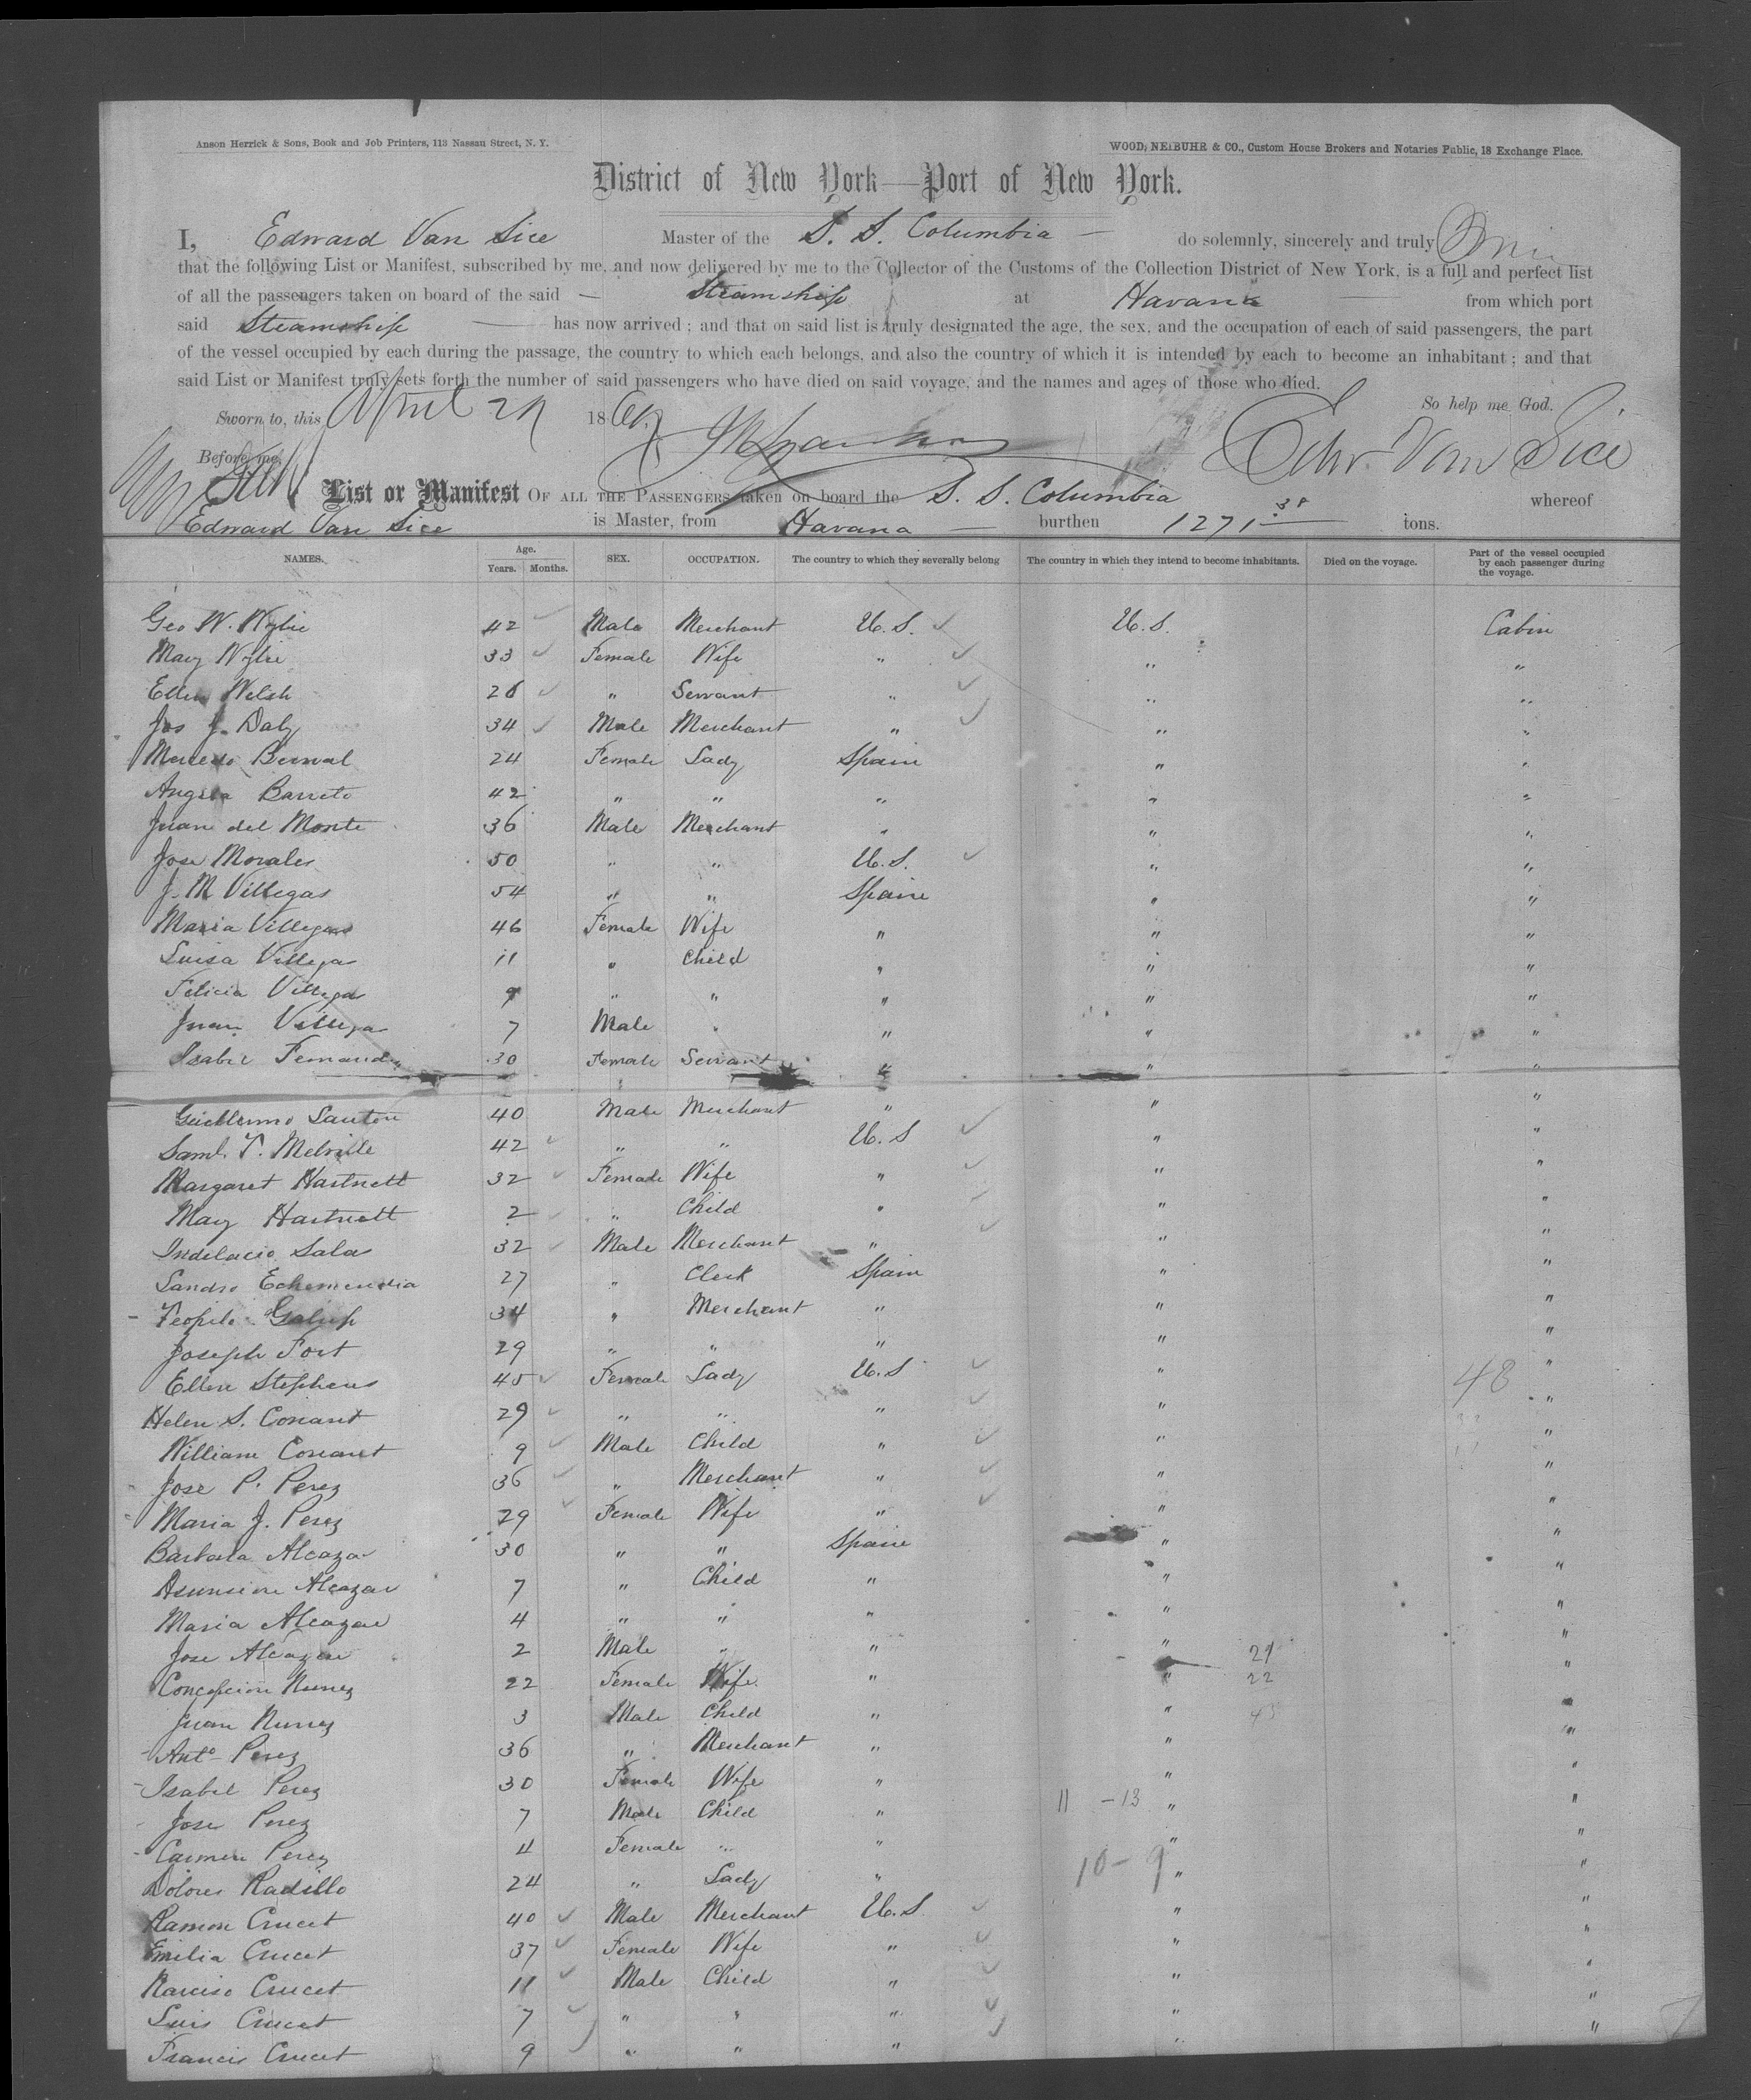 Anson Herrick & Sons, Book and Job Printers, 113 Nassau Street, N. Y.
WOOD, NEIBUHR & CO., Custom House Brokers and Notaries Public, 18 Exchange Place.
District of New York—Port of New York.
I, Edward Van Sice Master of the S. S. Columbia — do solemnly, sincerely and truly
that the following List or Manifest, subscribed by me, and now delivered by me to the Collector of the Customs of the Collection District of New York, is a full and perfect list
of all the passengers taken on board of the said — Steamship at Havana — from which port
said Steamship — has now arrived; and that on said list is truly designated the age, the sex, and the occupation of each of said passengers, the part
of the vessel occupied by each during the passage, the country to which each belongs, and also the country of which it is intended by each to become an inhabitant; and that
said List or Manifest truly sets forth the number of said passengers who have died on said voyage, and the names and ages of those who died.
So help me God.
Sworn to, this April 29 1869
Before me Edw. Van Sice
List or Manifest OF ALL THE PASSENGERS taken on board the S. S. Columbia whereof
Edward Van Sice is Master, from Havana — burthen 1271 38 tons.
NAMES. Age. Years. Months. SEX. OCCUPATION. The country to which they severally belong The country in which they intend to become inhabitants. Died on the voyage. Part of the vessel occupied by each passenger during the voyage.
Geo W. Wylie 42 Male Merchant U. S. U. S. Cabin
Mary Wylie 33 Female Wife " " "
Ellen Welsh 26 " Servant " " "
Jos J. Daly 34 Male Merchant " " "
Mercedo Bernal 24 Female Lady Spain " "
Angela Barreto 42 " " " " "
Juan del Monte 36 Male Merchant " " "
Jose Morales 50 " " U. S. " "
J. M Villegas 54 " " Spain " "
Maria Villegas 46 Female Wife " " "
Luisa Villegas 11 " Child " " "
Felicia Villegas 9 " " " " "
Juan Villegas 7 Male " " " "
Isabel Fernandez 30 Female Servant " " "
Guillermo Santon 40 Male Merchant " " "
Saml. T. Melville 42 " " U. S " "
Margaret Hartnett 32 Female Wife " " "
Mary Hartnett 2 " Child " " "
Indelacio Sala 32 Male Merchant " " "
Sandro Echemendia 27 " Clerk Spain " "
Teopilo Galup 34 " Merchant " " "
Joseph Fort 29 " " " " "
Ellen Stephens 45 Female Lady U. S " "
48
Helen S. Conant 29 " " " " "
William Conant 9 Male Child " " "
Jose P. Perez 36 " Merchant " " "
Maria J. Perez 29 Female Wife " " "
Barbara Alcazar 30 " " Spain " "
Asuncion Alcazar 7 " Child " " "
Maria Alcazar 4 " " " " "
Jose Alcazar 2 Male " " " 21 "
Concepcion Nunez 22 Female Wife " " 22 "
Juan Nunez 3 Male Child " " 43 "
Anto Perez 36 " Merchant " " "
Isabel Perez 30 Female Wife " " "
Jose Perez 7 Male Child " 11 - 13 " "
Carmen Perez 4 Female " " " "
Dolores Radillo 24 " Lady " 10 - 9 " "
Ramon Crucet 40 Male Merchant U. S. " "
Emilia Crucet 37 Female Wife " " "
Narciso Crucet 11 Male Child " " "
Luis Crucet 7 " " " " "
Francis Crucet 9 " " " " "